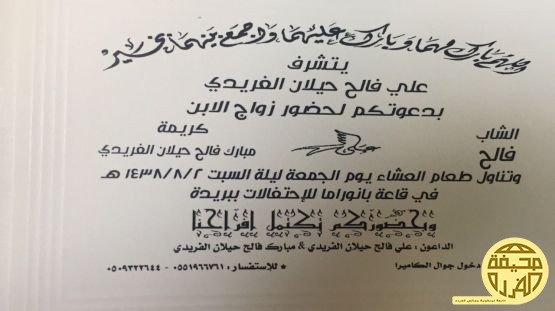 وبارك عليهما وجمع بينهما في خير
يتشرف
علي فالح حيلان الفريدي
بدعوتكم لحضور زواج الابن
الشاب كريمة
فالح علي مبارك فالح حيلان الفريدي
وتناول طعام العشاء يوم الجمعة ليلة السبت ١٤٣٨/٨/٢ هـ
في قاعة بانوراما للإحتفالات ببريدة
وبحضوركم تكتمل أفراحنا
الداعون : علي فالح حيلان الفريدي & مبارك فالح حيلان الفريدي
دخول جوال الكاميرا * للإستفسار : ٠٥٥١٩٦٦٧٦١ - ٠٥٠٩٣٢٢٦٤٤
صحيفة